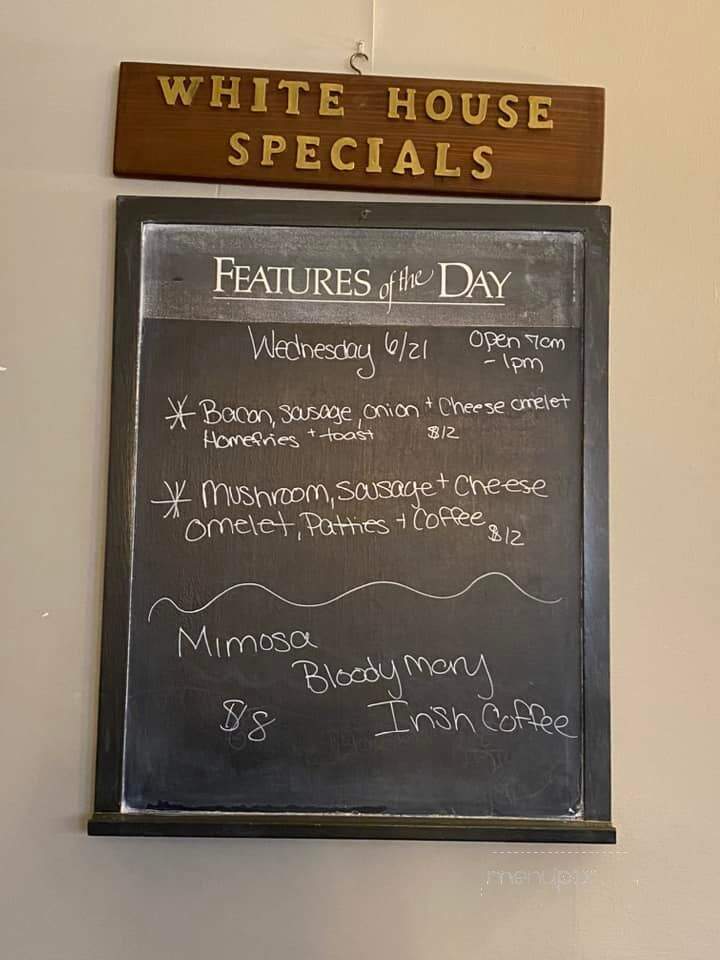 WHITE HOUSE
SPECIALS
FEATURES of the DAY
Wednesday 6/21
Open 7am
- 1pm
* Bacon, sausage, onion + Cheese omelet
Homefries + toast $12
* Mushroom, sausage + Cheese
omelet, Patties + Coffee $12
Mimosa
Bloody mary
$8 Irish Coffee
menupix